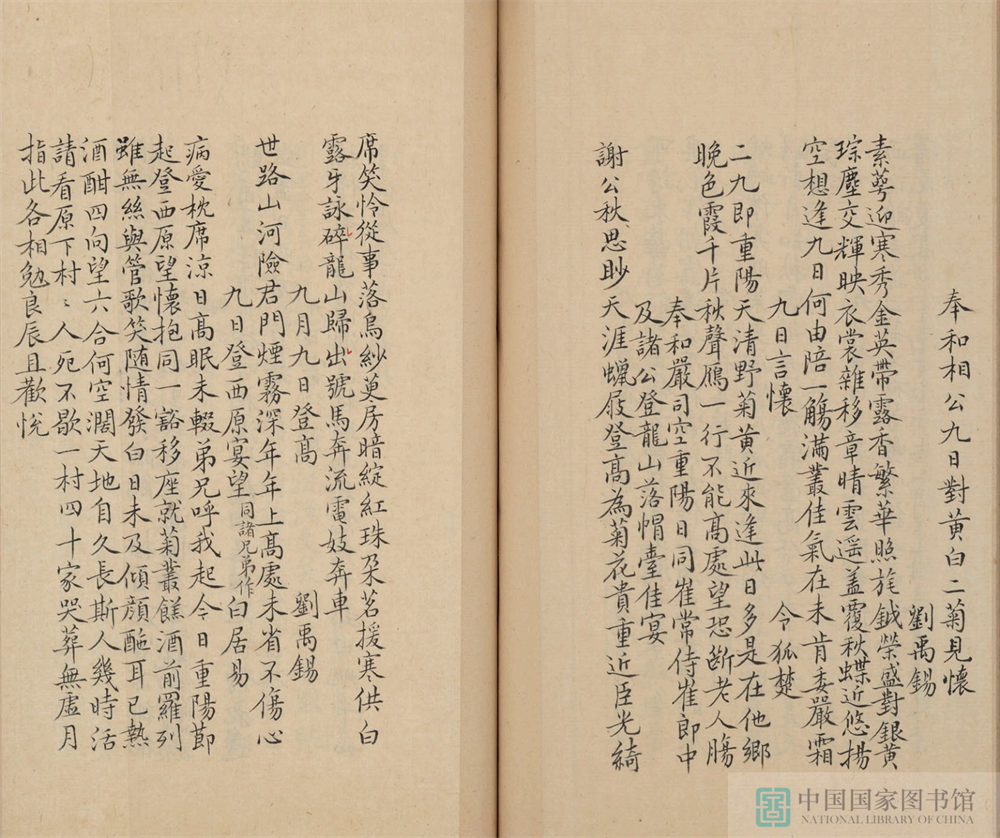 奉和相公九日對黃白二菊見懷
劉禹錫
素萼迎寒秀金英帶露香繁華照旄鉞榮盛對銀黃
琮塵交輝映衣裳雜移章晴雲遥盖覆秋蝶近悠揚
空想逢九日何由陪一觴滿叢佳氣在未肯委嚴霜
九日言懷 令狐楚
二九即重陽天清野菊黃近來逢此日多是在他鄉
晚色霞千片秋聲鴈一行不能高處望恐斷老人腸
奉和嚴司空重陽日同崔常侍崔郎中
及諸公登龍山落帽臺佳宴
謝公秋思眇天涯蠟屐登高為菊花貴重近臣光綺
席笑怜從事落烏紗萸房暗綻紅珠朶茗援寒供白
露牙詠碎龍山歸出號馬奔流電妓奔車
九月九日登高 劉禹錫
世路山河險君門煙霧深年年上髙處未省不傷心
九日登西原宴望同諸兄弟作 白居易
病愛枕席涼日髙眠未輟弟兄呼我起今日重陽節
起登西原望懷抱同一豁移座就菊叢餻酒前羅列
雖無絲與管歌笑随情發白日未及傾顔酡耳已熱
酒酣四向望六合何空濶天地自久長斯人幾時活
請看原下村〻人死不歇一村四十家哭葬無虛月
指此各相勉良辰且歡悅
中国国家图书馆
NATIONAL LIBRARY OF CHINA